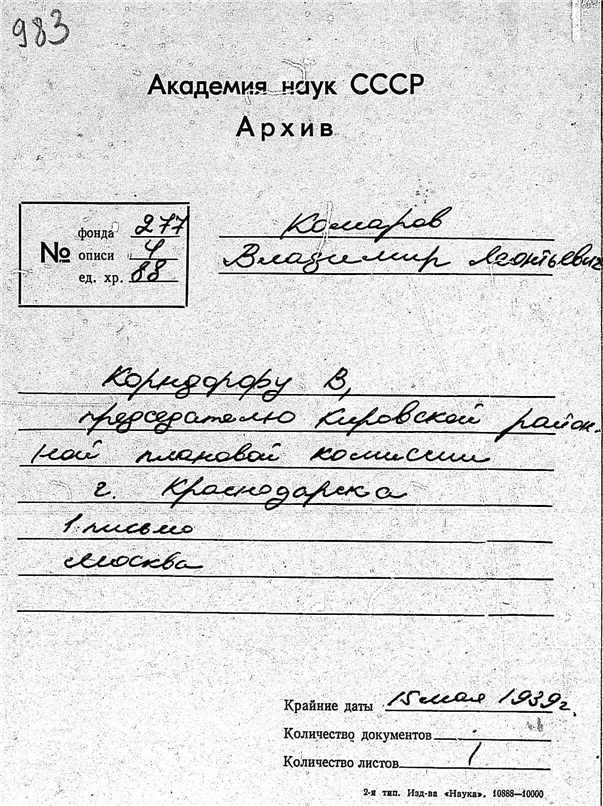 983
Академия наук СССР
Архив
№
фонда 277
описи 4
ед. хр. 88
Комаров
Владимир Леонтьевич
Корндорфу В,
председателю Кировской район-
ной плановой комиссии
г. Краснодарска
1 письмо
Москва
Крайние даты 15 мая 1939г.
Количество документов
Количество листов 1
2-я тип. Изд-ва «Наука». 10888—10000